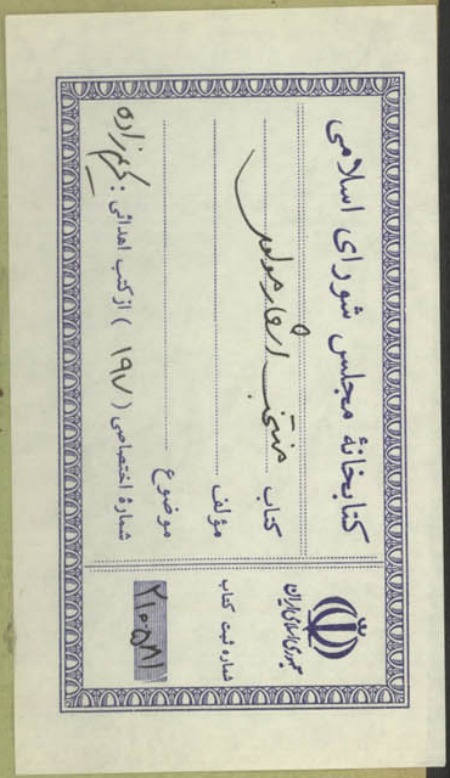 کتابخانهٔ مجلس شورای اسلامی
کتاب منتخب اشعار مولوی
مؤلف
موضوع
شمارهٔ اختصاصی ( ۱۹۷ ) از کتب اهدائی :
جمهوری اسلامی ایران
شماره ثبت کتاب
۲۱۰۵۸۱